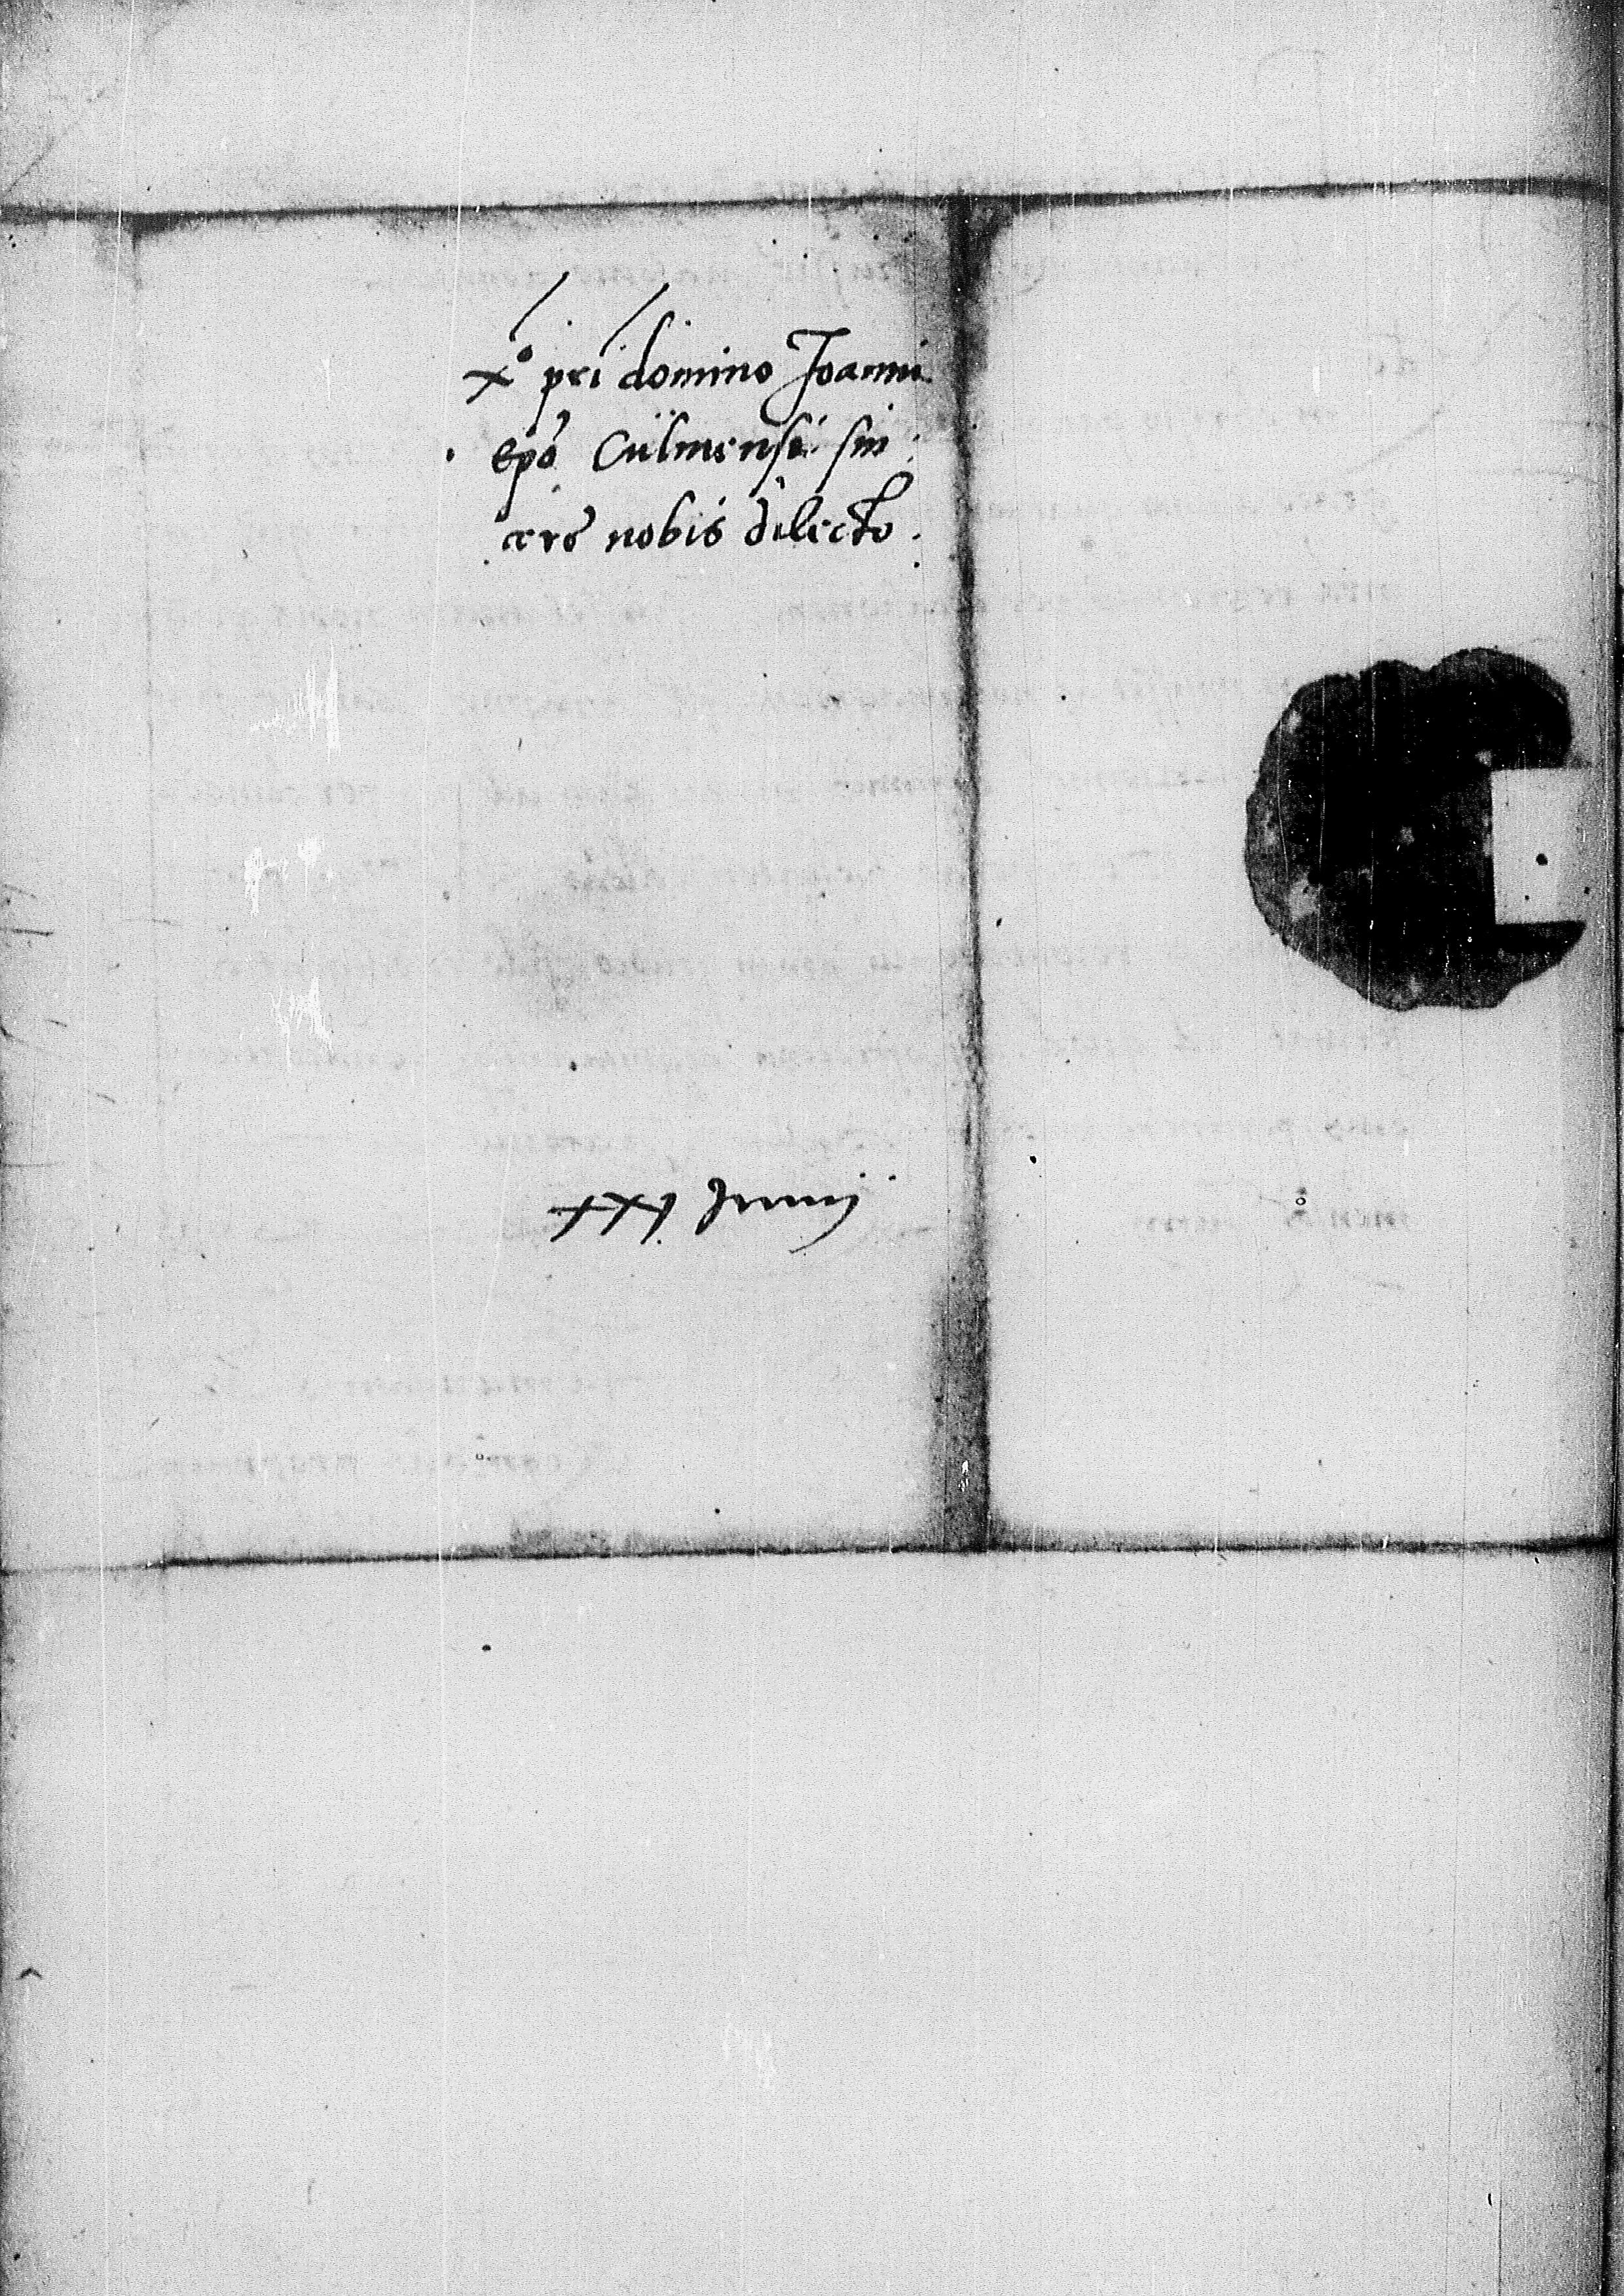 Xo pri domino Joanni
epo Culmensi sin
cere nobis dilecto.
XXj Junij